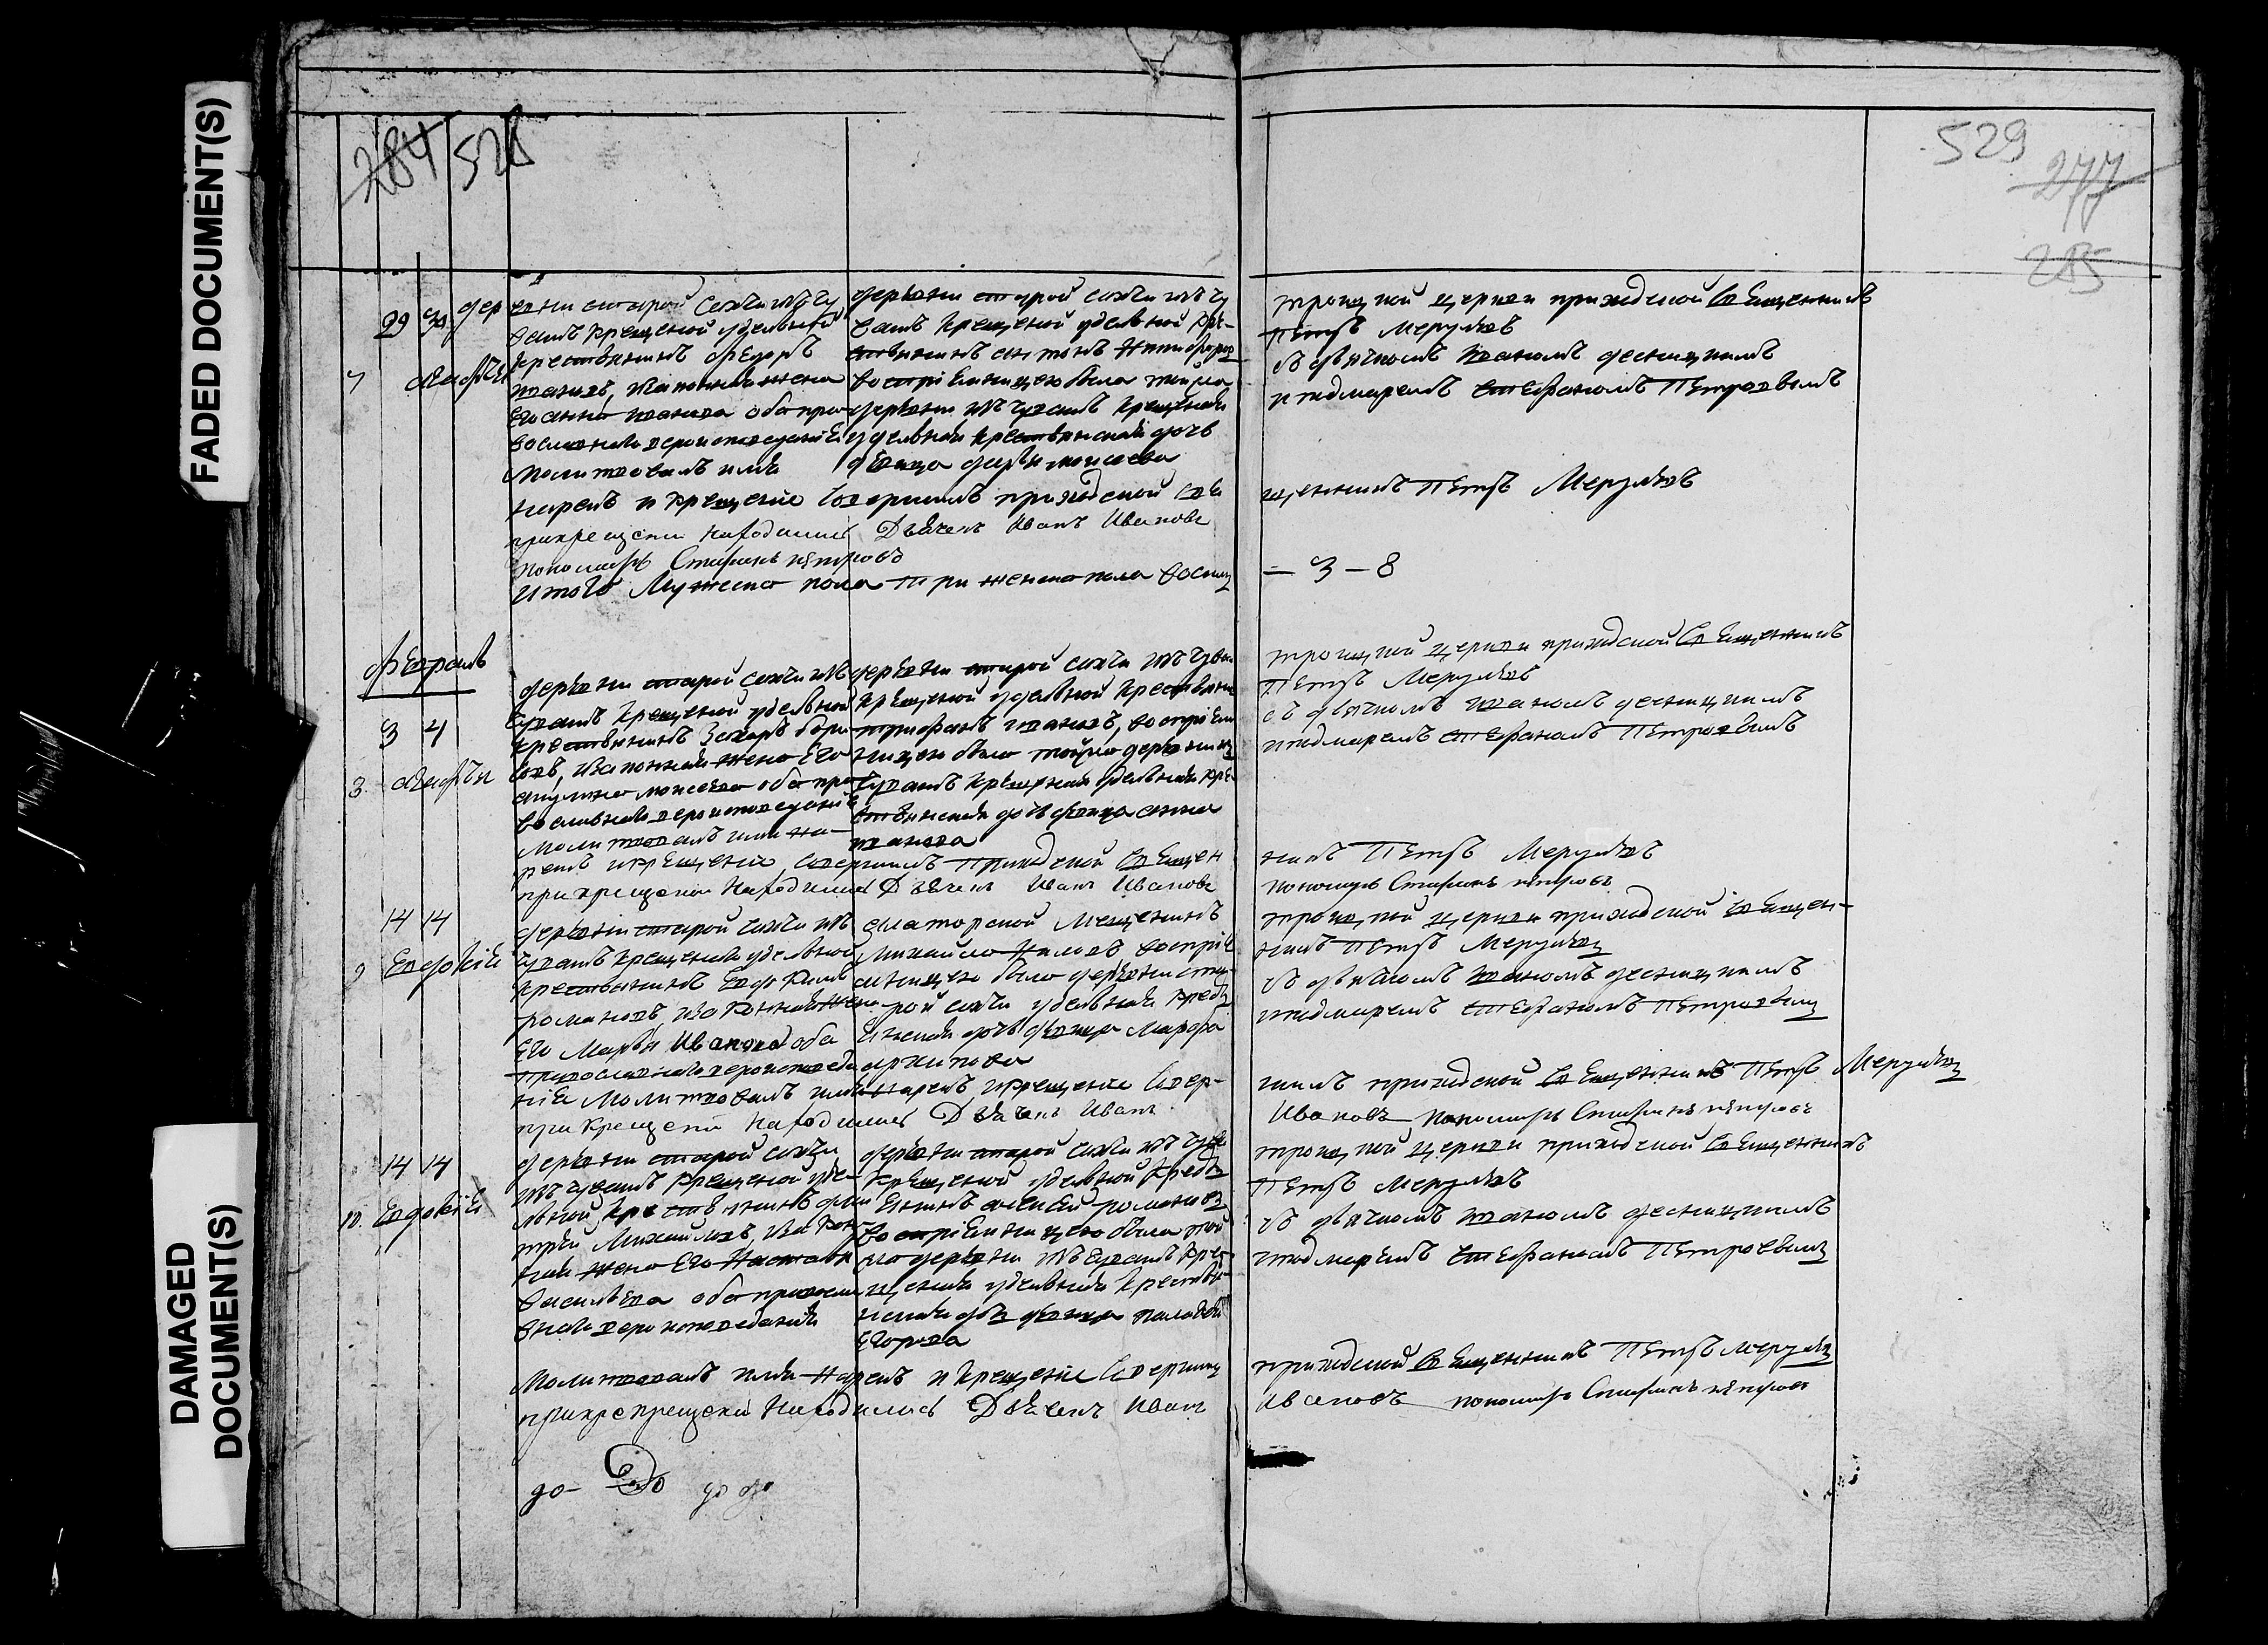 FADED DOCUMENT(S)
DAMAGED DOCUMENT(S)
284 528
529
277
285
29 30 деревни старой сахчи изъ чу
вашъ крещеной удельной
крестьянинъ Федоръ
7 Агафья
ивановъ, законная жена
его анна иванова оба пра
вославнаго вероисповеданiя
деревни старой сахчи изъ чу
вашъ крещеной удельной кре-
стьянинъ антонъ
восприемницею была тойже
деревни изъ чувашъ крещеная
удельная крестьянская дочь
девица дарья моисеева
троицкой церкви приходской священникъ
Петръ Меруковъ
съ дьячкомъ иваномъ десницкимъ
и пономаремъ стефаномъ Петровымъ
Молитвовалъ имя
нарекъ и крещение совершилъ приходской свя
щенникъ Петръ Меруковъ
при крещении находились Дьячекъ Иванъ Ивановъ
пономарь Стефанъ петровъ
Итого Мужеска пола три женска пола восемь
— 3 — 8
Февраль
3 4
8. Агафья
деревни старой сахчи изъ
чувашъ крещеной удельной
крестьянинъ Захаръ бори
совъ, законная жена его
акулина моисеева оба пра
вославнаго вероисповеданiя
деревни старой сахчи изъ чуваш
крещеной удельной крестьяни
трифонъ ивановъ, восприем
ницею была тойже деревни изъ
чувашъ крещеная удельная кре-
стьянская дочь девица анна
иванова
троицкой церкви приходской священникъ
Петръ Меруковъ
съ дьячкомъ иваномъ десницкимъ
и пономаремъ стефаномъ Петровымъ
молитвовалъ имя на-
рекъ и крещение совершилъ приходской священ
никъ Петръ Меруковъ
при крещении находились Дьячекъ Иванъ Ивановъ
пономарь Стефанъ петровъ
14 14
9 Евдокия
деревни старой сахчи изъ
чувашъ крещеной удельной
крестьянинъ
романовъ, законная жена
его Марья Иванова оба
православнаго вероисповеда
нiя
мещанинъ
михайло восприе
мницею была деревни ста-
рой сахчи удельная крестья
нская дочь девица Марфа
архипова
троицкой церкви приходской священ-
никъ Петръ Меруков
съ дьячкомъ иваномъ десницкимъ
и пономаремъ стефаномъ Петровым
Молитвовалъ имя нарекъ и крещение совер-
шилъ приходской священникъ Петръ Меруков
при крещении находились Дьячекъ Иванъ
Ивановъ пономарь Стефанъ петровъ
14 14
10. Евдокия
деревни старой сахчи
изъ чувашъ крещеной уде-
льной крестьянинъ дми
трей Михайловъ, закон
ная жена его Настасья
Васильева оба правосла
внаго вероисповеданiя
деревни старой сахчи изъ чува
крещеной удельной крестья
нинъ алексей романовъ
восприемницею была той
же деревни изъ чувашъ кре
щеная удельная крестья-
нская дочь девица палагея
Егорова
троицкой церкви приходской священникъ
Петръ Меруковъ
съ дьячкомъ иваномъ десницкимъ
и пономаремъ стефаномъ Петровым
Молитвовалъ имя нарекъ и крещение совершил
приходской священникъ Петръ Меруков
при крещении находились Дьячекъ Иванъ
Ивановъ пономарь Стефанъ петровъ
до- До до до